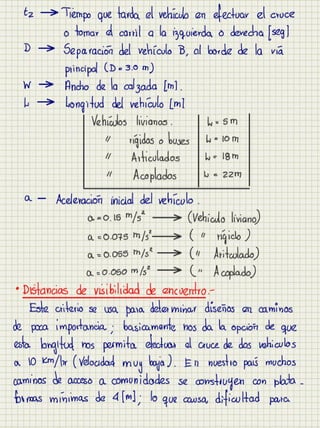 t2 → Tiempo que tarda el vehículo en efectuar el cruce
o tomar el carril a la izquierda o derecha [seg]
D → Separación del vehículo B, al borde de la vía
principal (D = 3.0 m)
W → Ancho de la calzada [m].
L → Longitud del vehículo [m]
Vehículos livianos. L = 5m
" rígidos o buses L = 10m
" Articulados L = 18m
" Acoplados L = 22m
a - Aceleración inicial del vehículo.
a = 0.15 m/s² → (Vehículo liviano)
a = 0.075 m/s² → ( " rígido )
a = 0.055 m/s² → ( " Articulado)
a = 0.050 m/s² → ( " Acoplado)
• Distancias de visibilidad de encuentro.-
Este criterio se usa para determinar diseños en caminos
de poca importancia; basicamente nos da la opción de que
esta longitud nos permita efectuar el cruce de dos vehículos
a 10 km/hr (Velocidad muy baja). En nuestro país muchos
caminos de acceso a comunidades se construyen con plata-
formas mínimas de 4[m]; lo que causa, dificultad para